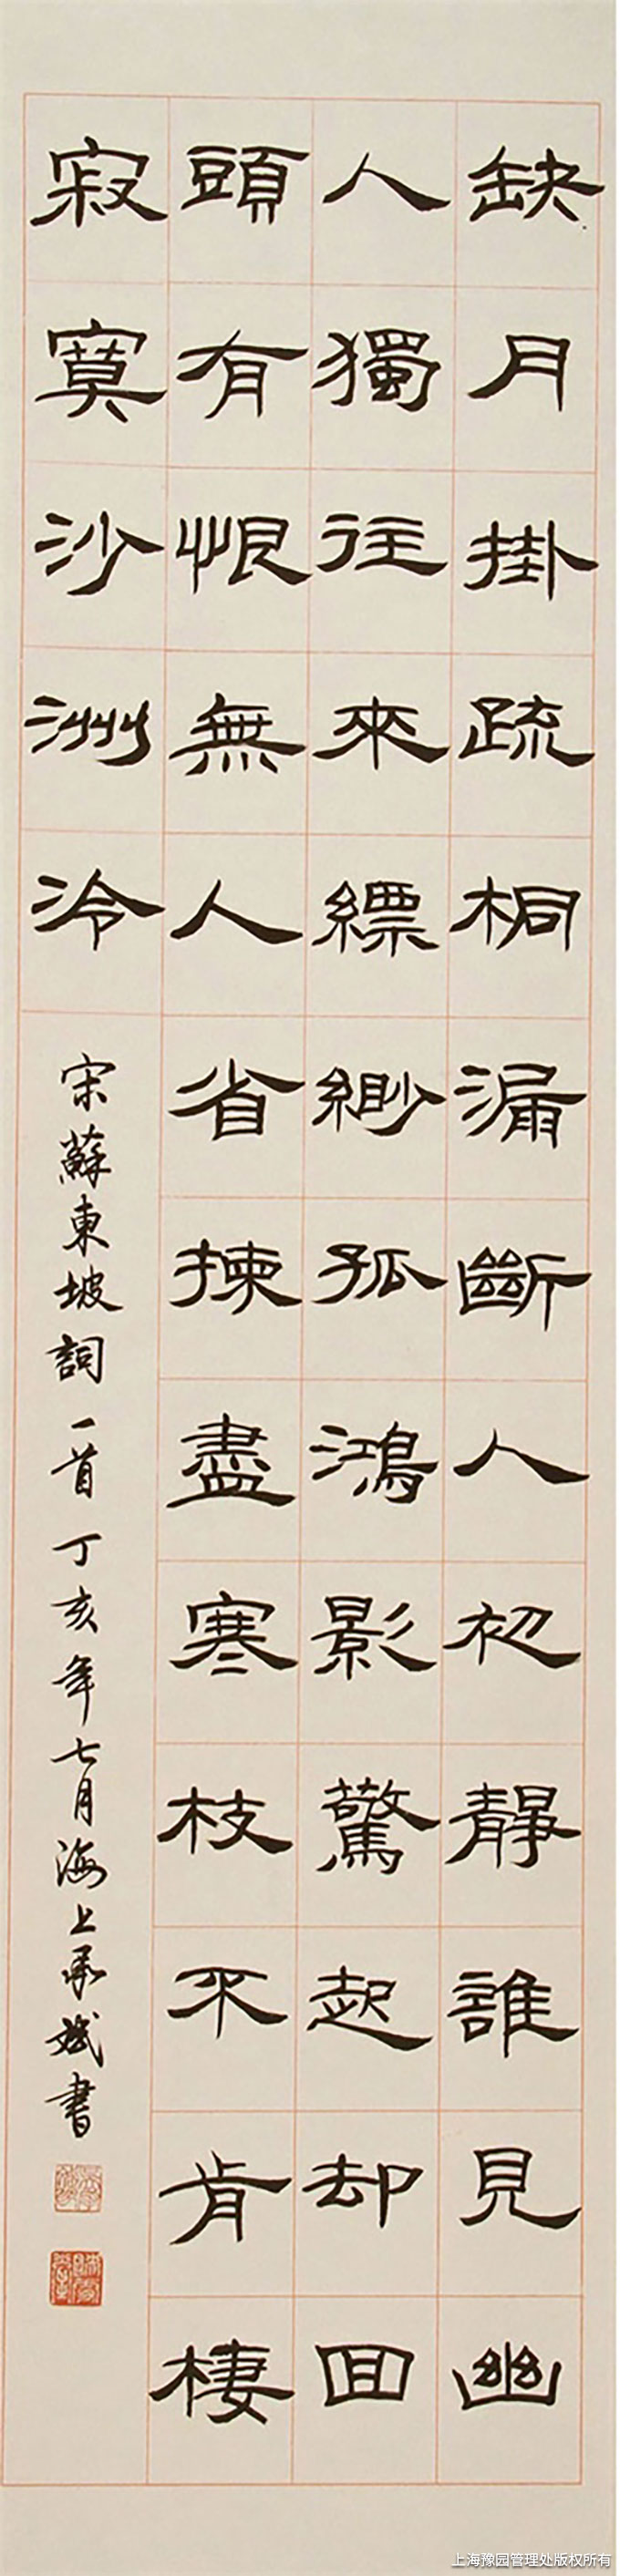 缺月掛疏桐漏斷人初靜誰見幽
人獨往來縹緲孤鴻影驚起却回
頭有恨無人省揀盡寒枝不肯棲
寂寞沙洲冷
宋蘇東坡詞一首丁亥年七月海上承斌書
上海豫园管理处版权所有